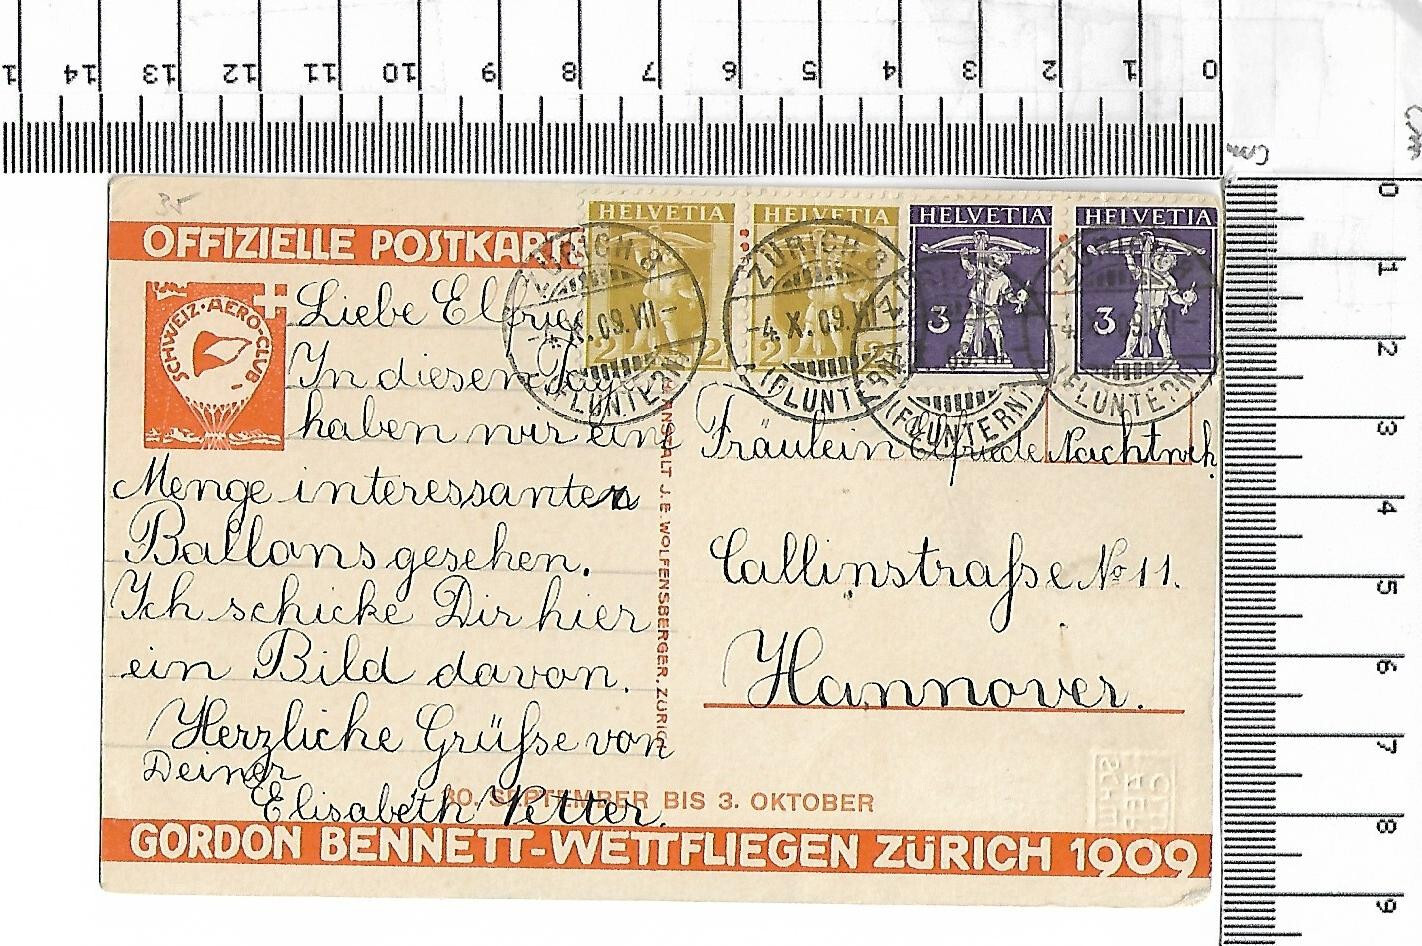 1 14 13 12 11 10 9 8 7 6 5 4 3 2 1 0
cm
cm
0
1
2
3
4
5
6
7
8
9
35
OFFIZIELLE POSTKARTE
SCHWEIZ · AERO-CLUB
Liebe Elfriede
In diesen Tagen
haben wir eine
Menge interessanten
Ballons gesehen.
Ich schicke Dir hier
ein Bild davon.
Herzliche Grüsse von
Deiner
Elisabeth Vetter.
HELVETIA
2 2
HELVETIA
2 2
HELVETIA
3
HELVETIA
3
ZÜRICH 8
-4.X.09.VII-
(FLUNTERN)
ZÜRICH 8
-4.X.09.VII-
(FLUNTERN)
(FLUNTERN)
(FLUNTERN)
J.E. WOLFENSBERGER, ZÜRICH
Fräulein Elfriede Nachtweh.
Callinstraße No 11.
Hannover.
30. SEPTEMBER BIS 3. OKTOBER
GORDON BENNETT-WETTFLIEGEN ZÜRICH 1909